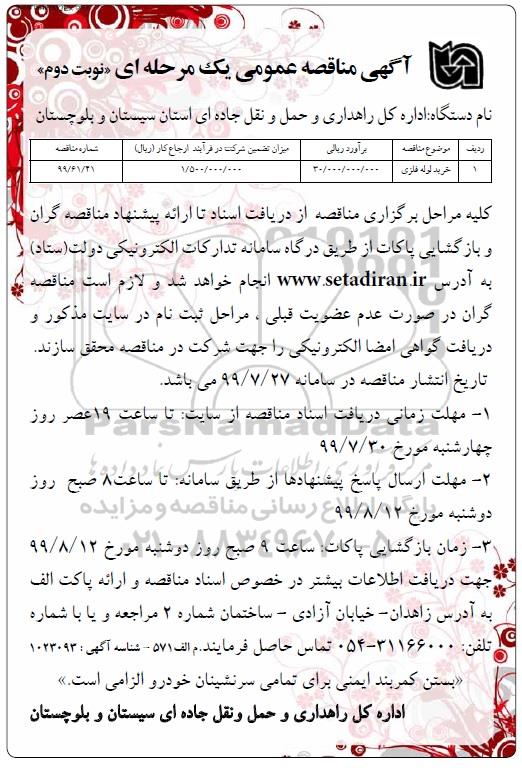 آگهی مناقصه عمومی یک مرحله ای «نوبت دوم»
نام دستگاه:اداره کل راهداری و حمل و نقل جاده ای استان سیستان و بلوچستان
ردیف موضوع مناقصه برآورد ریالی میزان تضمین شرکت در فرآیند ارجاع کار (ریال) شماره مناقصه
۱ خرید لوله فلزی ۳۰/۰۰۰/۰۰۰/۰۰۰ ۱/۵۰۰/۰۰۰/۰۰۰ ۹۹/۶۱/۲۱
کلیه مراحل برگزاری مناقصه از دریافت اسناد تا ارائه پیشنهاد مناقصه گران
و بازگشایی پاکات از طریق درگاه سامانه تدارکات الکترونیکی دولت(ستاد)
به آدرس www.setadiran.ir انجام خواهد شد و لازم است مناقصه
گران در صورت عدم عضویت قبلی ، مراحل ثبت نام در سایت مذکور و
دریافت گواهی امضا الکترونیکی را جهت شرکت در مناقصه محقق سازند.
تاریخ انتشار مناقصه در سامانه ۹۹/۷/۲۷ می باشد.
۱- مهلت زمانی دریافت اسناد مناقصه از سایت: تا ساعت ۱۹عصر روز
چهارشنبه مورخ ۹۹/۷/۳۰
۲- مهلت ارسال پاسخ پیشنهادها از طریق سامانه: تا ساعت۸ صبح روز
دوشنبه مورخ ۹۹/۸/۱۲
۳- زمان بازگشایی پاکات: ساعت ۹ صبح روز دوشنبه مورخ ۹۹/۸/۱۲
جهت دریافت اطلاعات بیشتر در خصوص اسناد مناقصه و ارائه پاکت الف
به آدرس زاهدان- خیابان آزادی - ساختمان شماره ۲ مراجعه و یا با شماره
تلفن: ۳۱۱۶۶۰۰۰-۰۵۴ تماس حاصل فرمایند.م الف۵۷۱ - شناسه آگهی : ۱۰۲۳۰۹۳
«بستن کمربند ایمنی برای تمامی سرنشینان خودرو الزامی است.»
اداره کل راهداری و حمل ونقل جاده ای سیستان و بلوچستان
ParsNamadData
پایگاه اطلاع رسانی مناقصه و مزایده